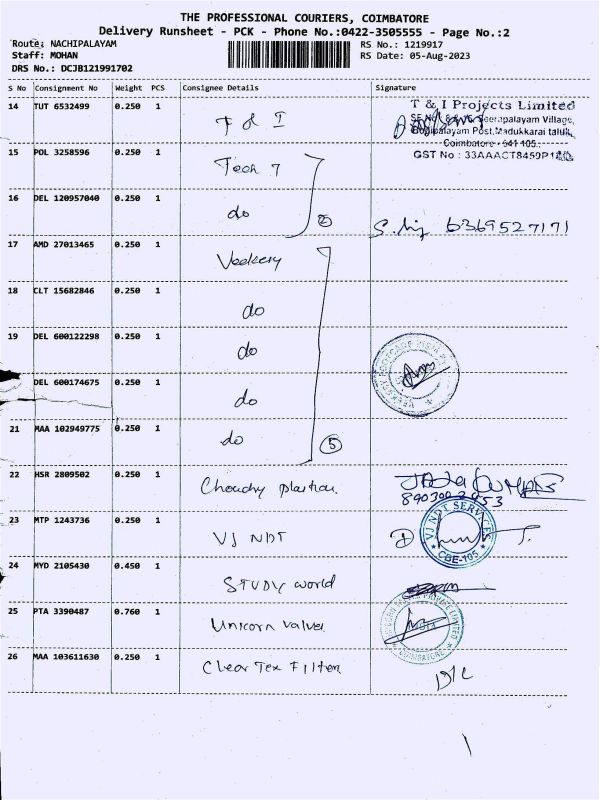 THE PROFESSIONAL COURIERS, COIMBATORE
Delivery Runsheet - PCK - Phone No.:0422-3505555 - Page No.:2
Route: NACHIPALAYAM RS No.: 1219917
Staff: MOHAN RS Date: 05-Aug-2023
DRS No.: DCJB121991702
S No Consignment No Weight PCS Consignee Details Signature
14 TUT 6532499 0.250 1 T & I
T & I Projects Limited
Seerapalayam Village,
Bogipalayam Post, Madukkarai taluk,
Coimbatore - 641 105.
GST No : 33AAACT8459P1
15 POL 3258596 0.250 1 Tech 7
16 DEL 120957040 0.250 1 do 2 6369527171
17 AMD 27013465 0.250 1 Veekesy
18 CLT 15682846 0.250 1 do
19 DEL 600122298 0.250 1 do
DEL 600174675 0.250 1 do
21 MAA 102949775 0.250 1 do 5
22 HSR 2809502 0.250 1 Choudry
23 MTP 1243736 0.250 1 VJ NDT
VJ NDT SERVICES
CBE-105
24 MYD 2105430 0.450 1 STUDY world
25 PTA 3390487 0.760 1 Unicorn Valves
COIMBATORE
26 MAA 103611630 0.250 1 Clear Tex Filters